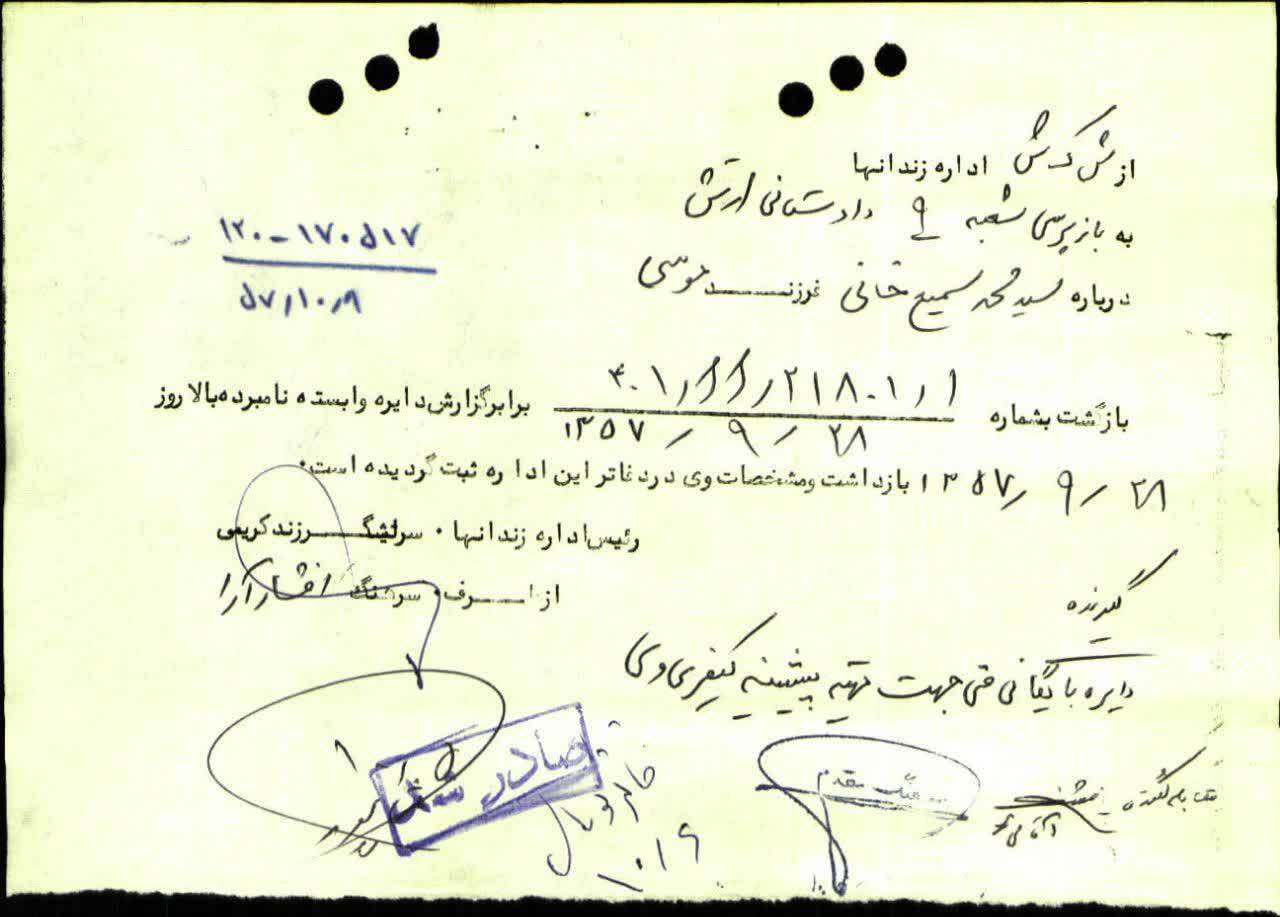 از ش ک ش اداره زندانها
به بازپرسی شعبه ۹ دادستانی ارتش
درباره سید محمد سمیع خانی فرزند موسی
۱۲۰-۱۷۰۵۱۷
۵۷/۱۰/۹
بازگشت بشماره ۴۰۱/ / /۲۱۸۰۱/۱ برابرگزارش دایره وابسته نامبرده بالا روز
۱۳۵۷/۹/۲۸
۱۳۵۷/۹/۲۸ بازداشت ومشخصات وی دردفاتر این اداره ثبت گردیده است.
رئیس اداره زندانها . سرلشگر زندکریمی
از طرف . سرهنگ افشارآرا
گیرنده
دایره بایگانی فنی جهت تهیه پیشینه کیفری وی
سرهنگ مقدم
صادر شد
۱۰/۹